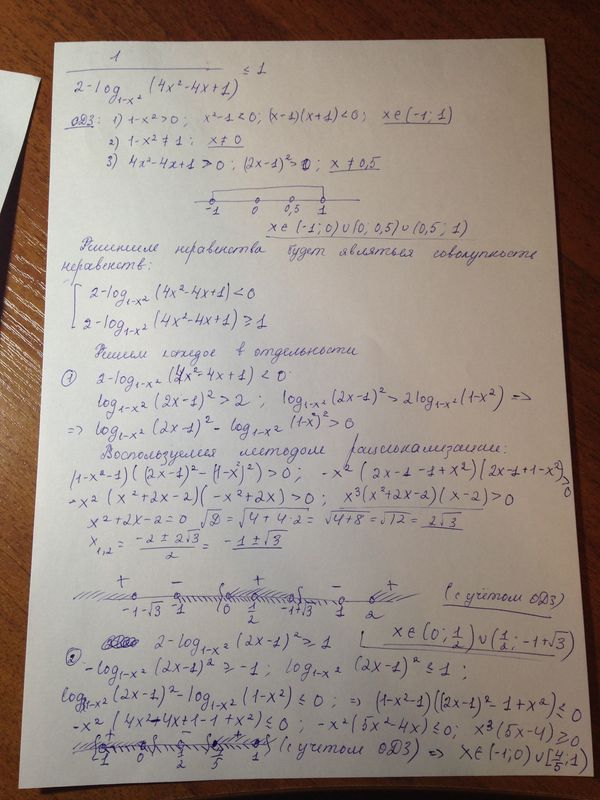 1
2-log₁₋ₓ² (4x²-4x+1) ≤ 1
ОДЗ: 1) 1-x²>0; x²-1<0; (x-1)(x+1)<0; x∈(-1;1)
2) 1-x²≠1; x≠0
3) 4x²-4x+1>0; (2x-1)²>0; x≠0,5
-1 0 0,5 1
x∈(-1;0)∪(0;0,5)∪(0,5;1)
Решением неравенства будет являться совокупность
неравенств:
2-log₁₋ₓ² (4x²-4x+1)<0
2-log₁₋ₓ² (4x²-4x+1)≥1
Решим каждое в отдельности
① 2-log₁₋ₓ² (4x²-4x+1)<0
log₁₋ₓ² (2x-1)²>2; log₁₋ₓ² (2x-1)²>2log₁₋ₓ² (1-x²) =>
=> log₁₋ₓ² (2x-1)² - log₁₋ₓ² (1-x²)²>0
Воспользуемся методом рационализации:
(1-x²-1)((2x-1)²-(1-x²)²)>0; -x²(2x-1-1+x²)(2x-1+1-x²)>0
-x²(x²+2x-2)(-x²+2x)>0; x³(x²+2x-2)(x-2)>0
x²+2x-2=0 √D=√4+4·2=√4+8=√12=2√3
x₁,₂= -2±2√3/2 = -1±√3
+ - + - +
-1-√3 -1 0 1/2 -1+√3 1 2 (с учётом ОДЗ)
x∈(0;1/2)∪(1/2;-1+√3)
② 2-log₁₋ₓ² (2x-1)²≥1
-log₁₋ₓ² (2x-1)²≥-1; log₁₋ₓ² (2x-1)²≤1;
log₁₋ₓ² (2x-1)²-log₁₋ₓ² (1-x²)≤0; => (1-x²-1)((2x-1)²-1+x²)≤0
-x²(4x²-4x+1-1+x²)≤0; -x²(5x²-4x)≤0; x³(5x-4)≥0
+ - +
-1 0 1/2 4/5 1 (с учётом ОДЗ) => x∈(-1;0)∪[4/5;1)